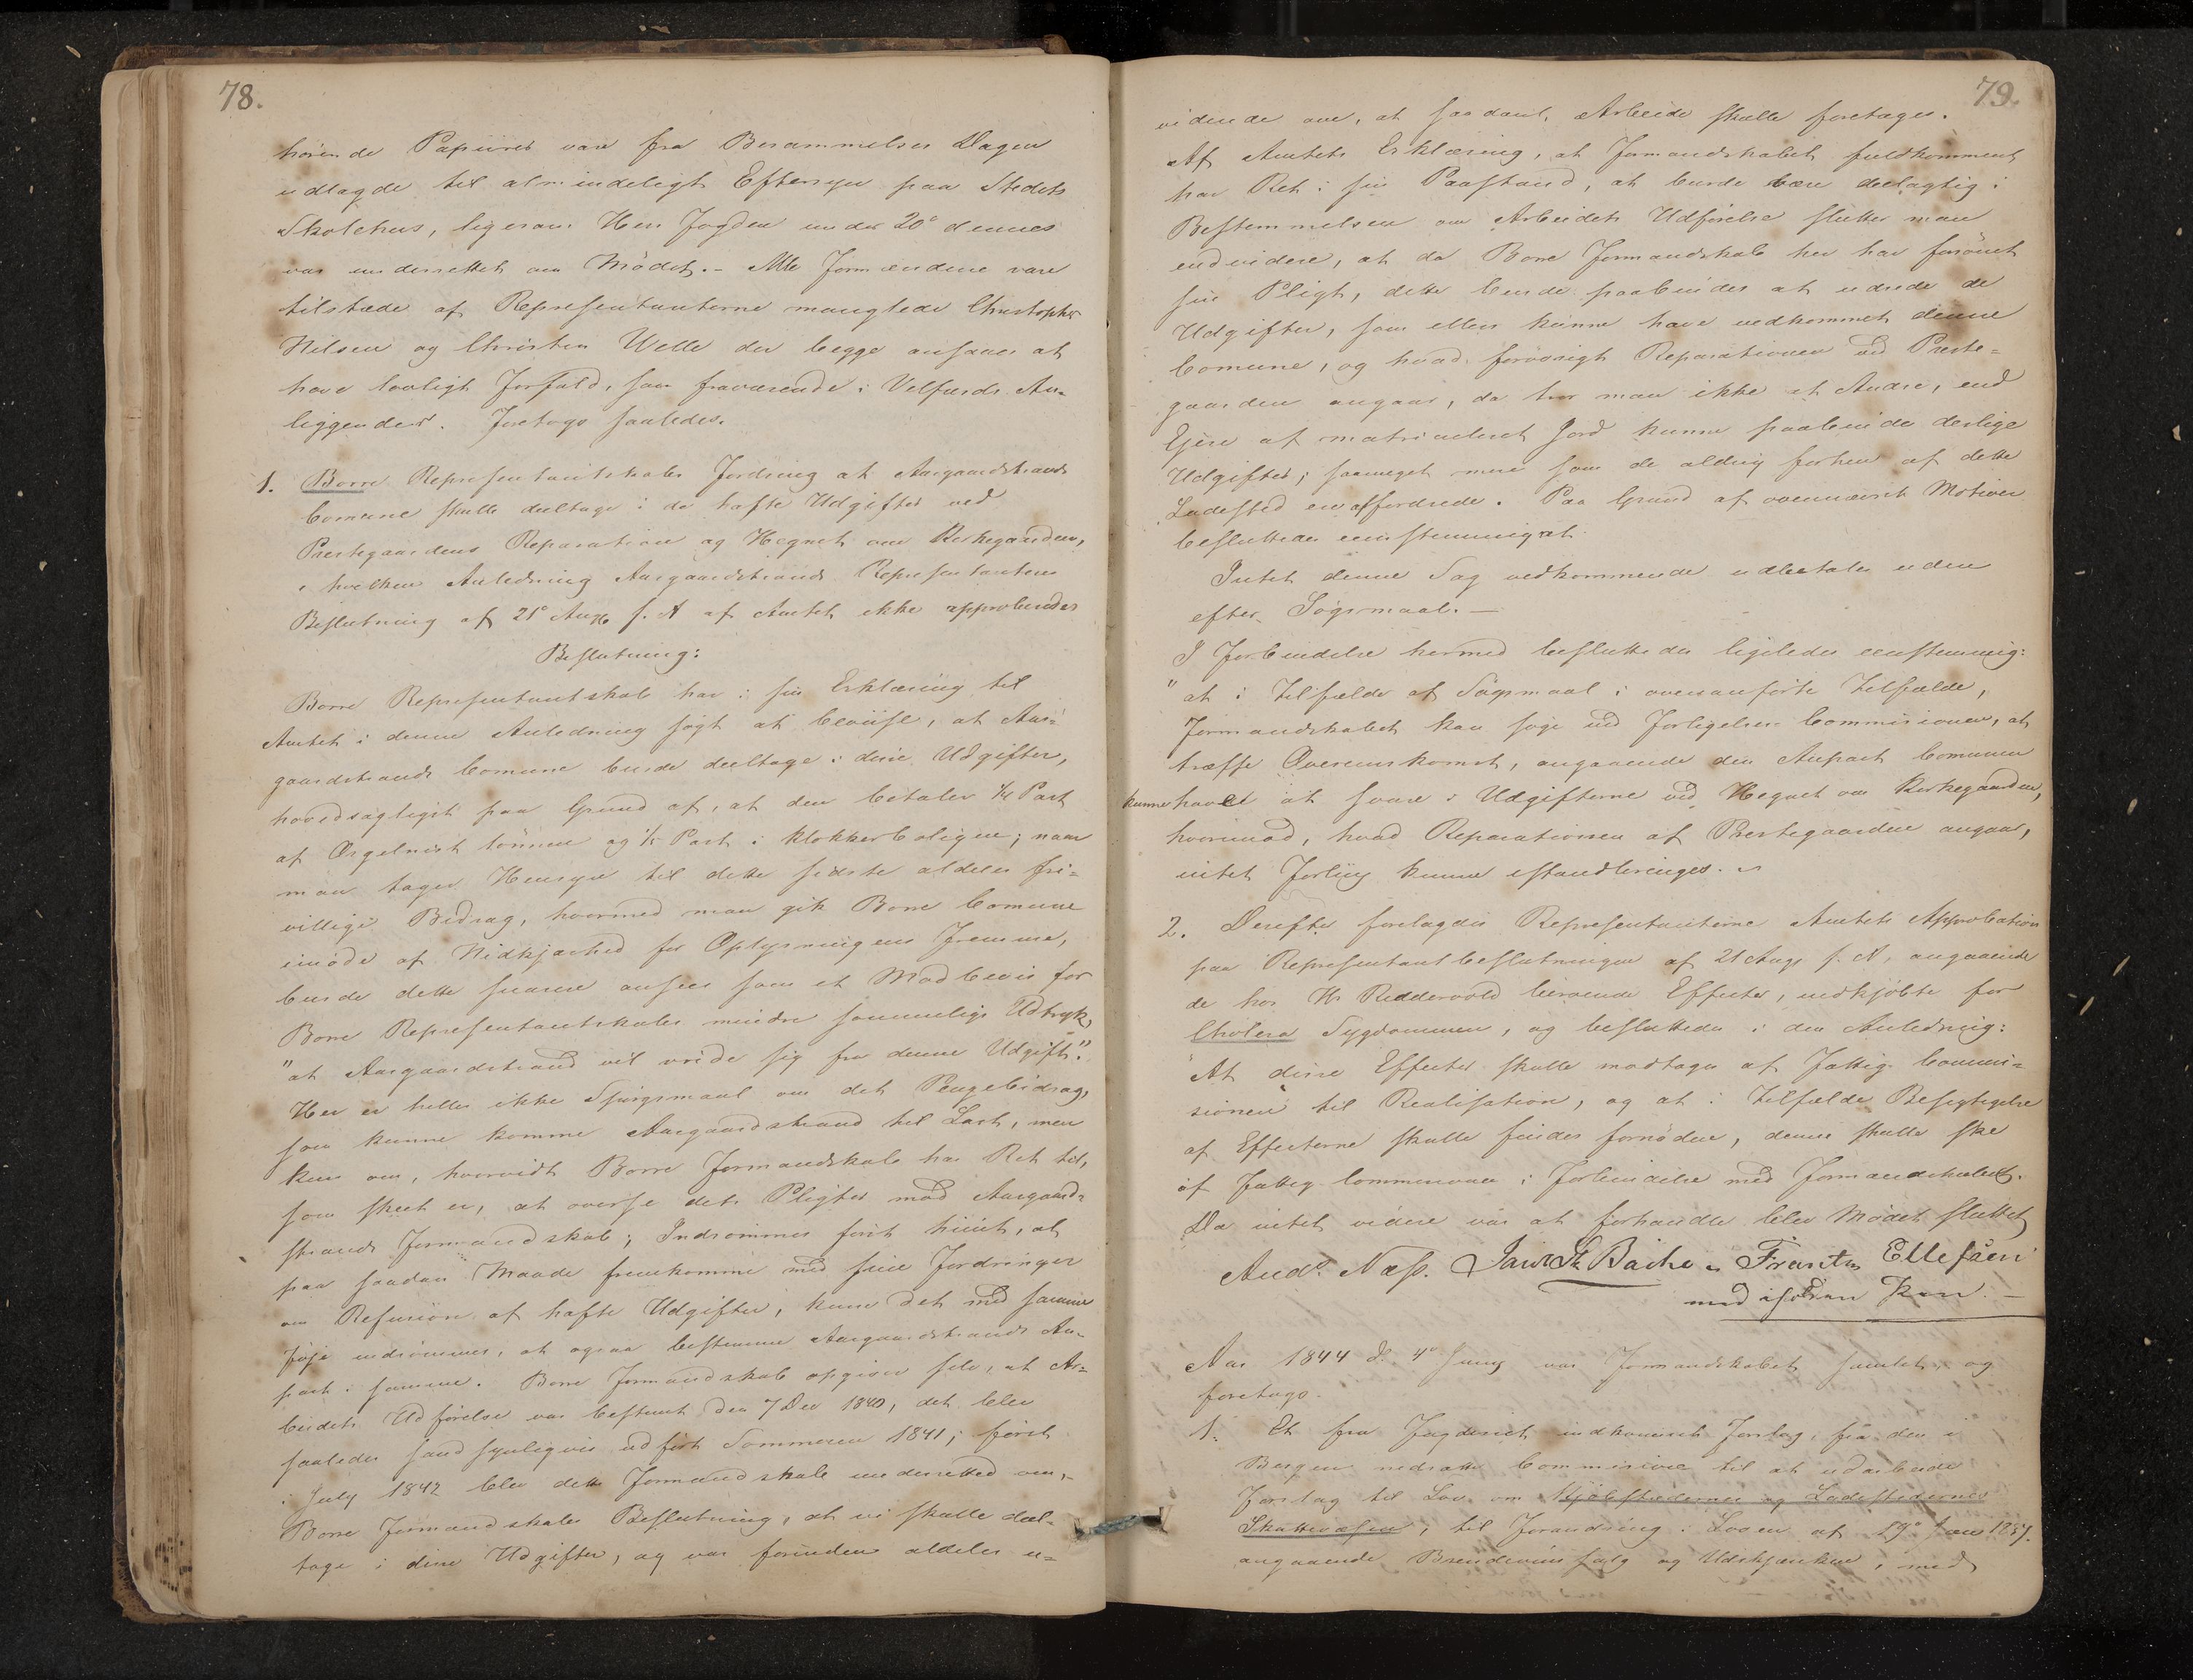 78.
hörende Papiirer vare fra Berammelses Dagen
udlagde til almindeligt Eftersyn paa Stedets
Skolehus, ligesom Herr Fogden under 20de dennes
var underrettet om Mödet. - Alle Formændene vare
tilstæde af Repræsentanterne manglede Christopher
Nilsen og Christen Welle der begge ansaaes at
have lovligt Forfald, som fraværende i Velfærds An-
liggender. Foretoges saaledes.
1. Borre Repræsentantskabs Fordring at Aasgaardstrands
Comune skulle deeltage i de hafte Udgifter ved
Prestegaardens Reparation og Hegnet om Kirkegaarden,
i hvilken Anledning Aasgaardstrands Repræsentanters
Beslutning af 21de Aug f. A af Amtet ikke approberedes
Beslutning:
Borre Repræsentantskab har i sin Erklæring til
Amtet i denne Anledning sögt at beviise, at Aas-
gaardstrands Comune burde deeltage i disse Udgifter,
hovedsagligst paa Grund af, at den betaler 1/4 Part
af Orgelnist lönnen og 1/5 Part i Klokkerboligen; naar
man tager Hensyn til dette sidste aldeles fri-
villige Bidrag, hvormed man gik Borre Comune
imöde af Nidkjærhed for Oplysningens Fremme,
burde dette snarere ansees som et Modbeviis for
Borre Repræsentantskabs mindre sömmelige Udtryk,
"at Aasgaardstrand vil vride sig fra denne Udgift".
Her er heller ikke Spörgsmaal om det Pengebidrag,
som kunne komme Aasgaardstrand til Last, men
kun om, hvorvidt Borre Formandskab har Ret til,
som skeet er, at overse dets Pligter mod Aasgaard-
strands Formandskab; Indrömmes först hiint, at
paa saadan Maade fremkomme med sine Fordringer
om Refusion af hafte Udgifter, kan det med samme
Föje indrömmes, at ogsaa bestemme Aasgaardstrands An-
part i samme. Borre Formandskab opgiver selv, at Ar-
beidets Udförelse var bestemt den 7 Dec 1840, det blev
saaledes sandsynligviis udfört Sommeren 1841; först
i July 1842 blev dette Formandskab underrettet om,
Borre Formandskabs Beslutning, at vi skulle deel-
tage i disse Udgifter, og var forinden aldeles u-
79.
vidende om, at saadant Arbeide skulle foretages.
Af Amtets Erklæring, at Formandskabet fuldkomment
har Ret i sin Paastand, at burde være deelagtig i
Bestemmelsen om Arbeidets Udförelse slutter man
endvidere, at da Borre Formandskab her har forsömt
sin Pligt, dette burde paabindes at udrede de
Udgifter, som ellers kunne have vedkommet denne
Comune, og hvad forövrigt Reparationen ved Preste-
gaarden angaar, da tror man ikke at Andre, end
Ejere af matriculeret Jord kunne paabindes deslige
Udgifter; saameget mere som de aldrig forhen af dette
Ladested ere affordrede. Paa Grund af ovennævnte Motiver
besluttedes eenstemmig at
Intet denne Sag vedkommende udbetales uden
efter Sögsmaal. -
I Forbindelse hermed besluttedes ligeledes eenstemmig:
"at i Tilfælde af Sögsmaal i ovenanförte Tilfælde,
Formandskabet kan söge ved Forligelses Commissionen, at
træffe Overeenskomst, angaaende den Anpart Comunen
kunne havet at svare i Udgifterne ved Hegnet om Kirkegaarden,
hvorimod, hvad Reparationen af Prestegaarden angaar,
intet Forliig kunne istandbringes. "
2. Derefter forelagdes Repræsentanterne Amtets Approbation
paa Repræsentantbeslutningen af 21 Aug f. A, angaaende
de hos Hr Reddervold beroende Effecter, indkjöbte for
Cholera Sygdommen, og besluttedes i den Anledning:
"At disse Effecter skulle modtages af Fattig Commis-
sionen til Realisation, og at i Tilfælde Besigtigelse
af Effecterne skulle findes fornöden, denne skulle ske
af Fattig-Commissionen i Forbindelse med Formandskabet.
Da intet videre var at forhandle blev Mödet sluttet
Andr. Næss. Bache Frants Ellefsen
med iholden Pen. -
Aar 1844 d. 4de Juny var Formandskabet samlet, og
foretoges.
1. Et fra Fogderiet indkommet Forslag, fra den i
Bergen nedsatte Commission til at udarbeide
Forslag til Lov om Kjöbstædernes og Ladestedernes
Skattevæsen, til Forandring i Loven af
angaaende Brændeviins Salg og Udskjænken, med